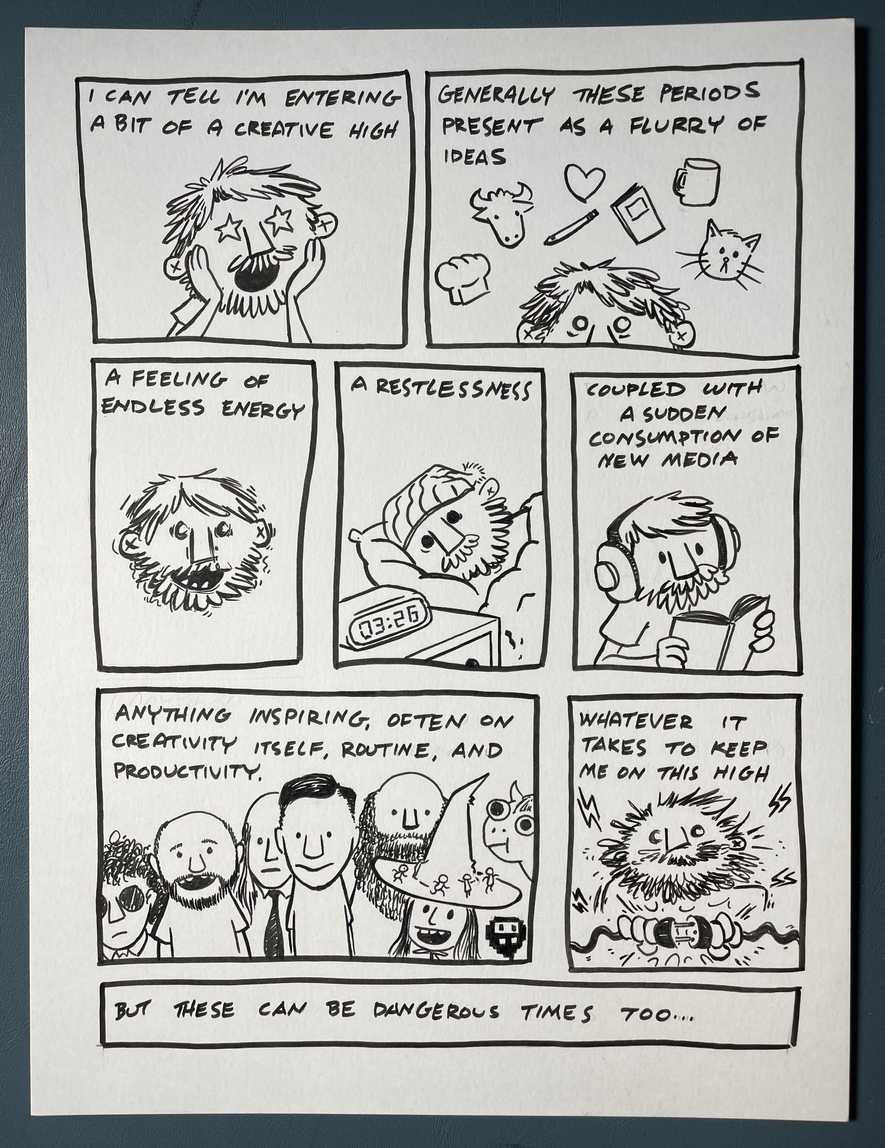 I CAN TELL I'M ENTERING
A BIT OF A CREATIVE HIGH
GENERALLY THESE PERIODS
PRESENT AS A FLURRY OF
IDEAS
A FEELING OF
ENDLESS ENERGY
A RESTLESSNESS
03:26
COUPLED WITH
A SUDDEN
CONSUMPTION OF
NEW MEDIA
ANYTHING INSPIRING, OFTEN ON
CREATIVITY ITSELF, ROUTINE, AND
PRODUCTIVITY.
WHATEVER IT
TAKES TO KEEP
ME ON THIS HIGH
BUT THESE CAN BE DANGEROUS TIMES TOO...